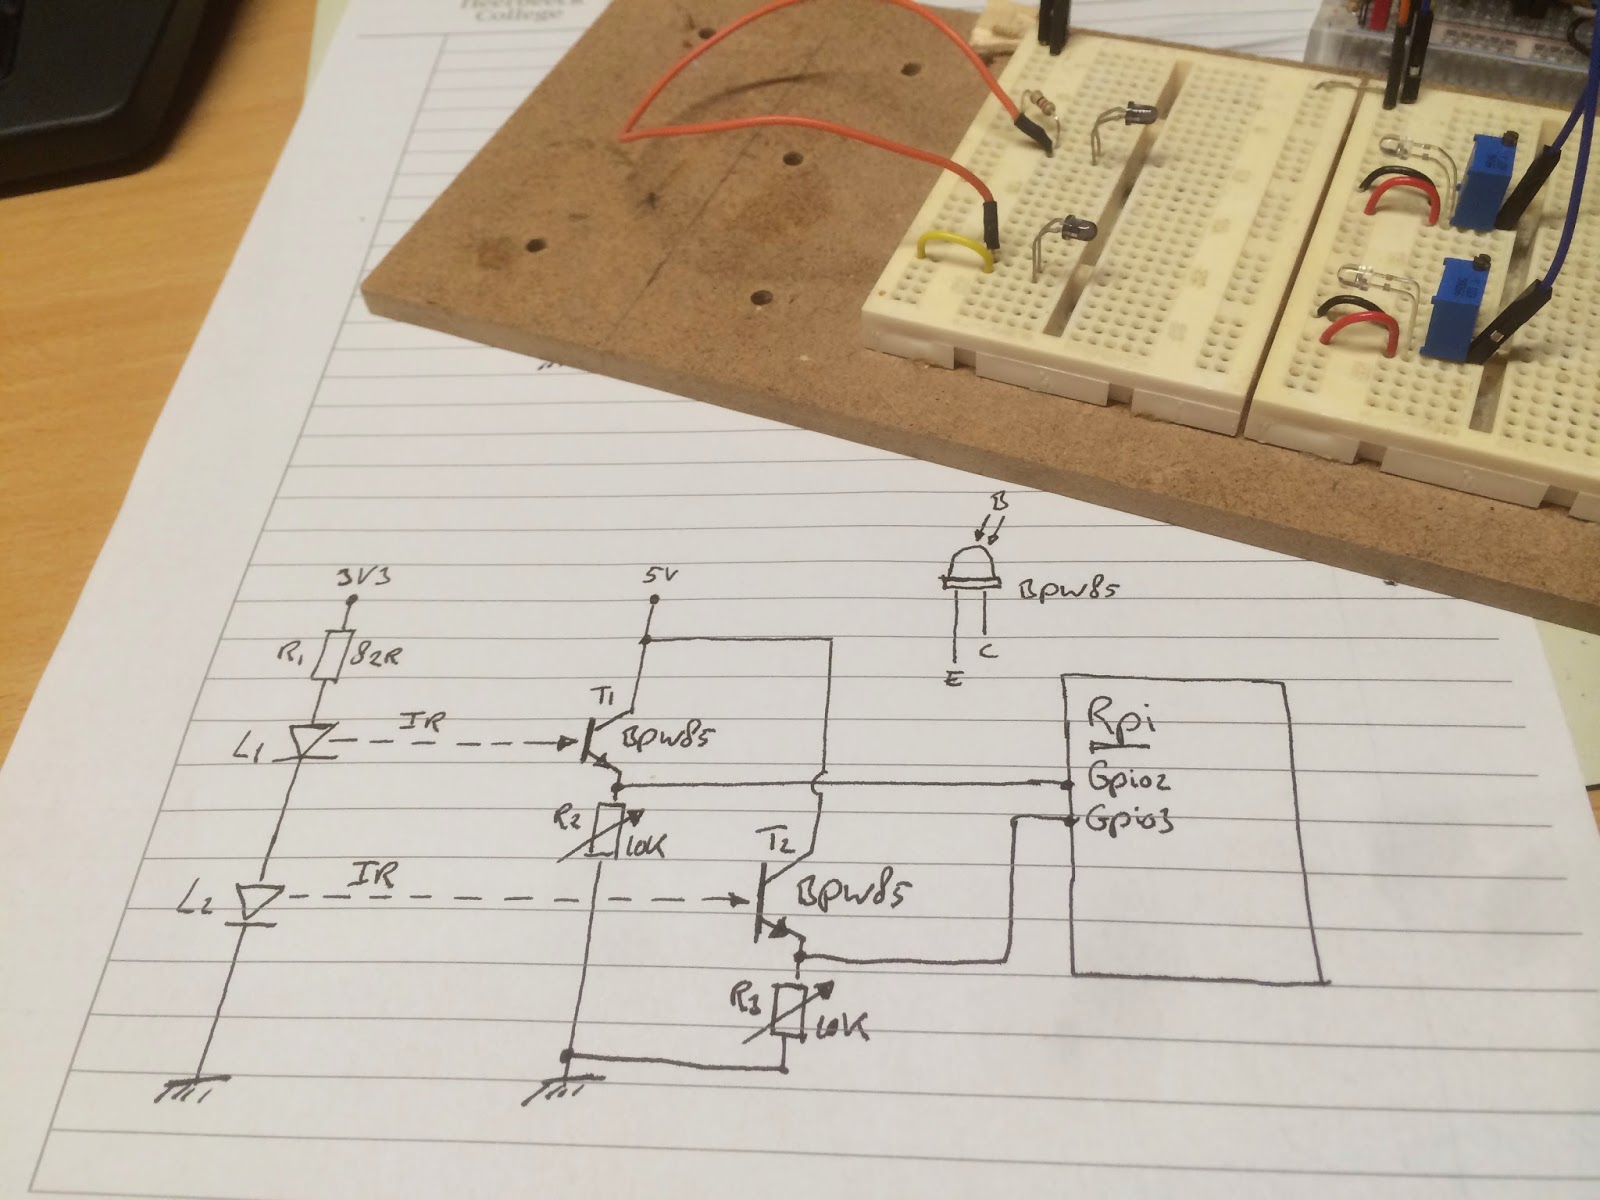 College
B
BPW85
C
E
3V3
5V
R1
82R
T1
BPW85
L1
IR
Rpi
Gpio2
Gpio3
R2
10K
T2
BPW85
L2
IR
R3
10K